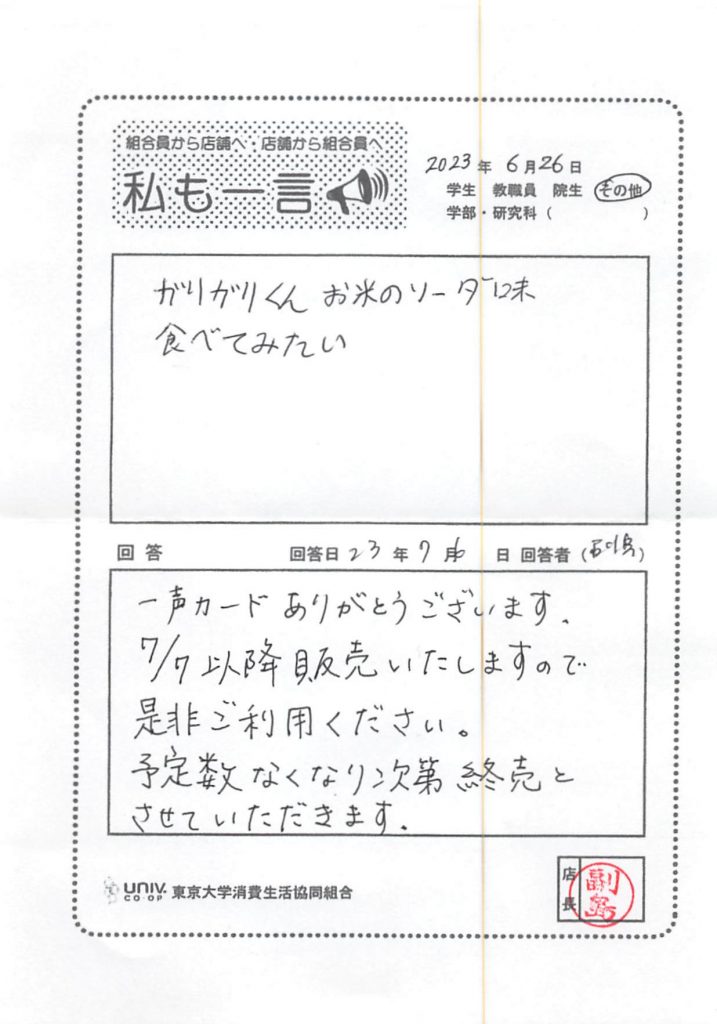 組合員から店舗へ・店舗から組合員へ
私も一言
2023年6月26日
学生 教職員 院生 その他
学部・研究科( )
ガリガリくん お米のソーダ味
食べてみたい
回答 回答日 23年7月6日 回答者(副島)
一声カード ありがとうございます.
7/7以降販売いたしますので
是非ご利用ください。
予定数なくなり次第終売と
させていただきます.
UNIV. CO-OP 東京大学消費生活協同組合
店長
副島